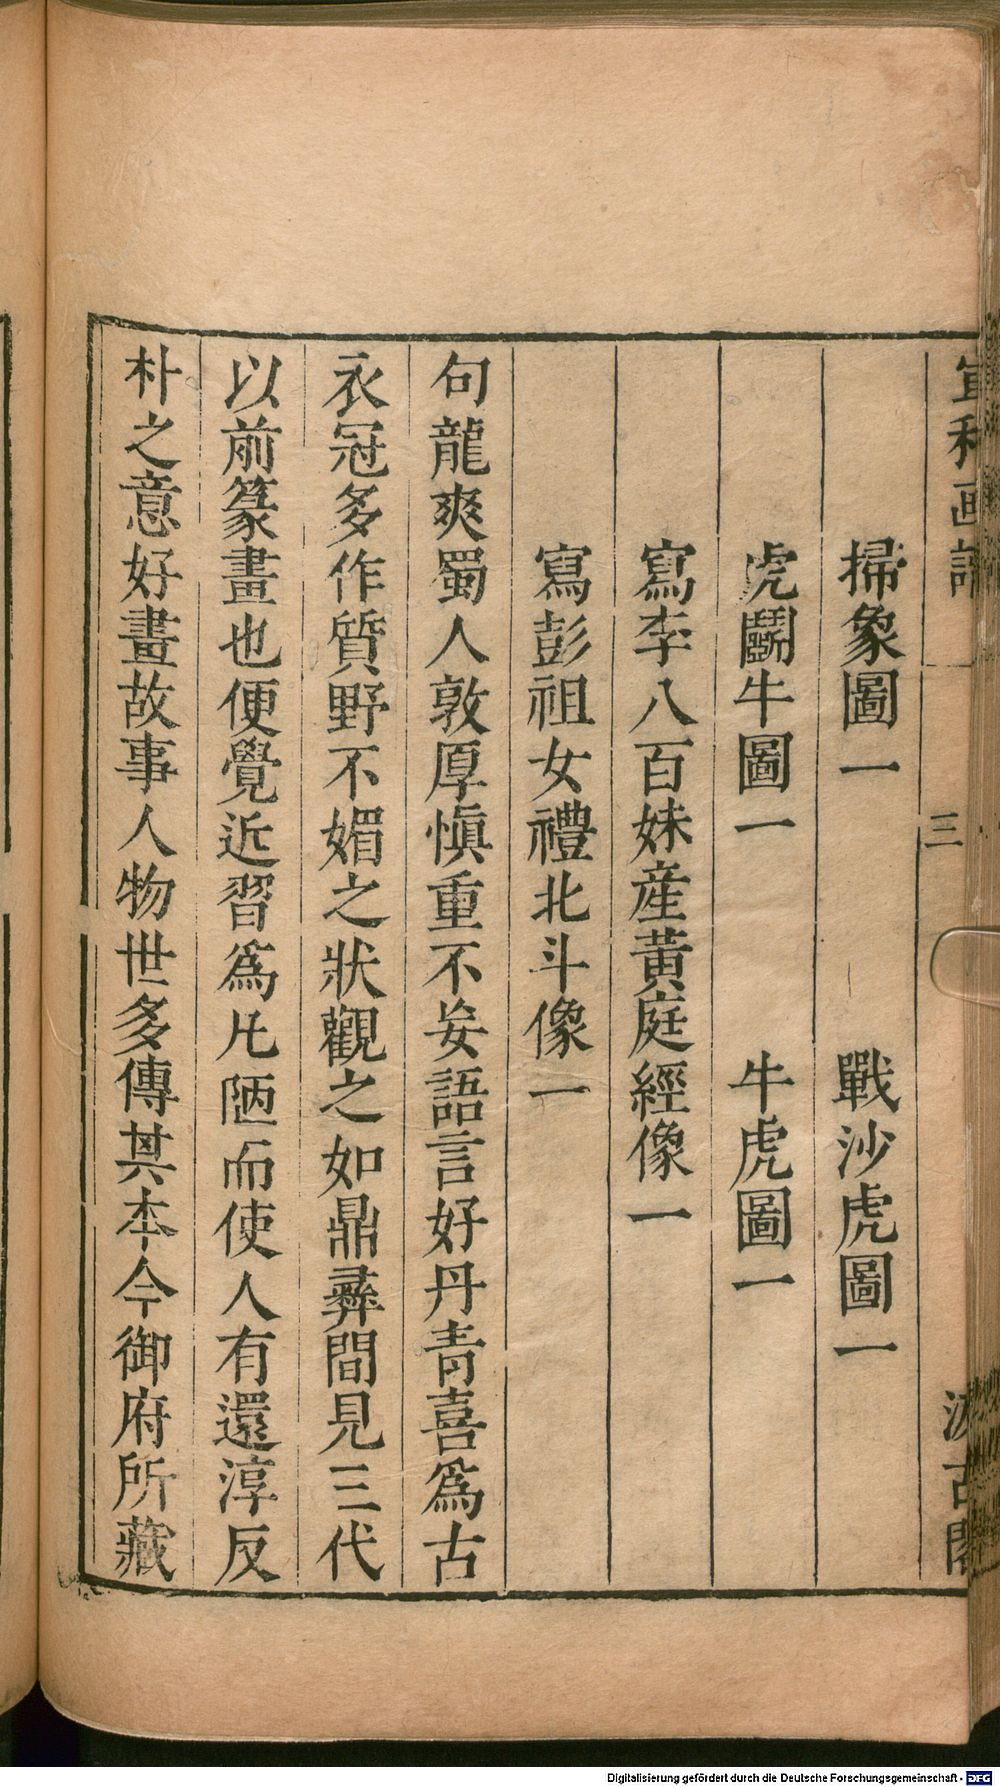 宣和画譜
三
汲古閣
掃象圖一 戰沙虎圖一
虎鬭牛圖一 牛虎圖一
寫李八百妹産黄庭經像一
寫彭祖女禮北斗像一
句龍爽蜀人敦厚愼重不妄語言好丹青喜爲古
衣冠多作質野不媚之狀觀之如鼎彝間見三代
以前篆畫也便覺近習爲凡陋而使人有還淳反
朴之意好畫故事人物世多傳其本今御府所藏
Digitalisierung gefördert durch die Deutsche Forschungsgemeinschaft - DFG